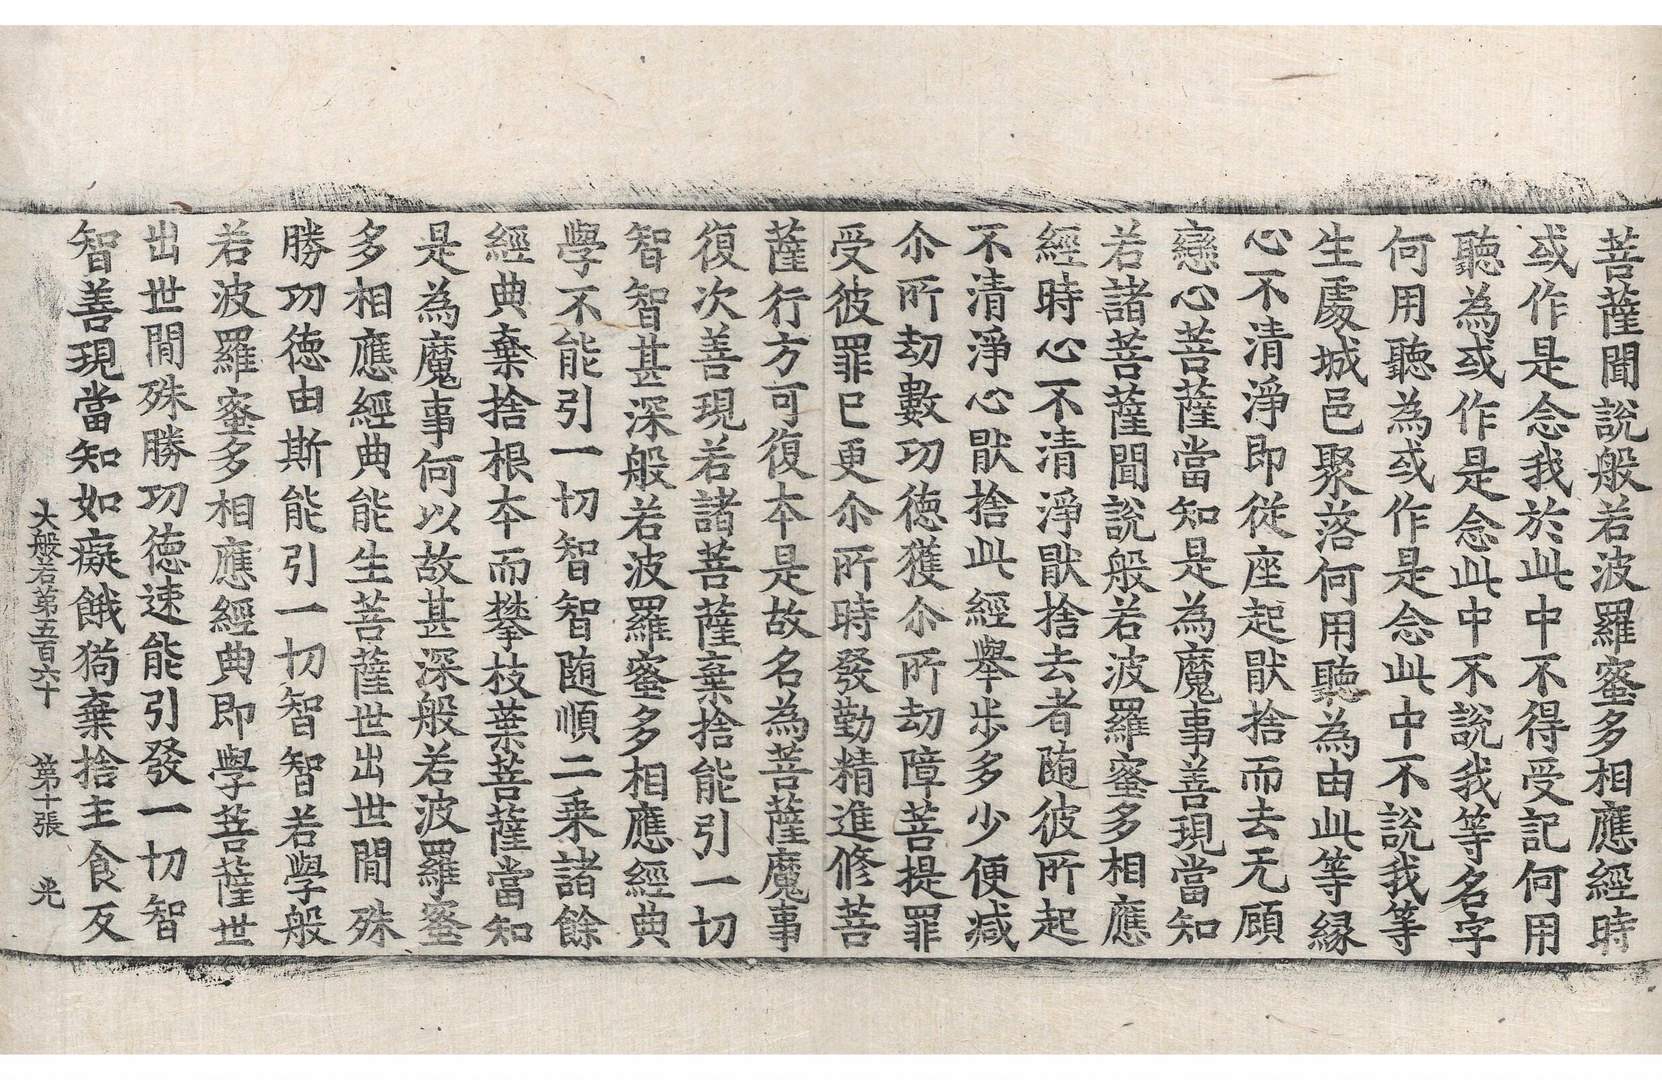 菩薩聞說般若波羅蜜多相應經時
或作是念我於此中不得受記何用
聽為或作是念此中不說我等名字
何用聽為或作是念此中不說我等
生處城邑聚落何用聽為由此等緣
心不清淨即從座起猒捨而去无顧
戀心菩薩當知是為魔事善現當知
若諸菩薩聞說般若波羅蜜多相應
經時心不清淨猒捨去者隨彼所起
不清淨心猒捨此經舉步多少便減
尒所劫數功德獲尒所劫障菩提罪
受彼罪已更尒所時發勤精進修菩
薩行方可復本是故名為菩薩魔事
復次善現若諸菩薩棄捨能引一切
智智甚深般若波羅蜜多相應經典
學不能引一切智智隨順二乗諸餘
經典棄捨根本而攀枝葉菩薩當知
是為魔事何以故甚深般若波羅蜜
多相應經典能生菩薩世出世間殊
勝功德由斯能引一切智智若學般
若波羅蜜多相應經典即學菩薩世
出世間殊勝功德速能引發一切智
智善現當知如癡餓猗棄捨主食反
大般若第五百六十 第十張 光